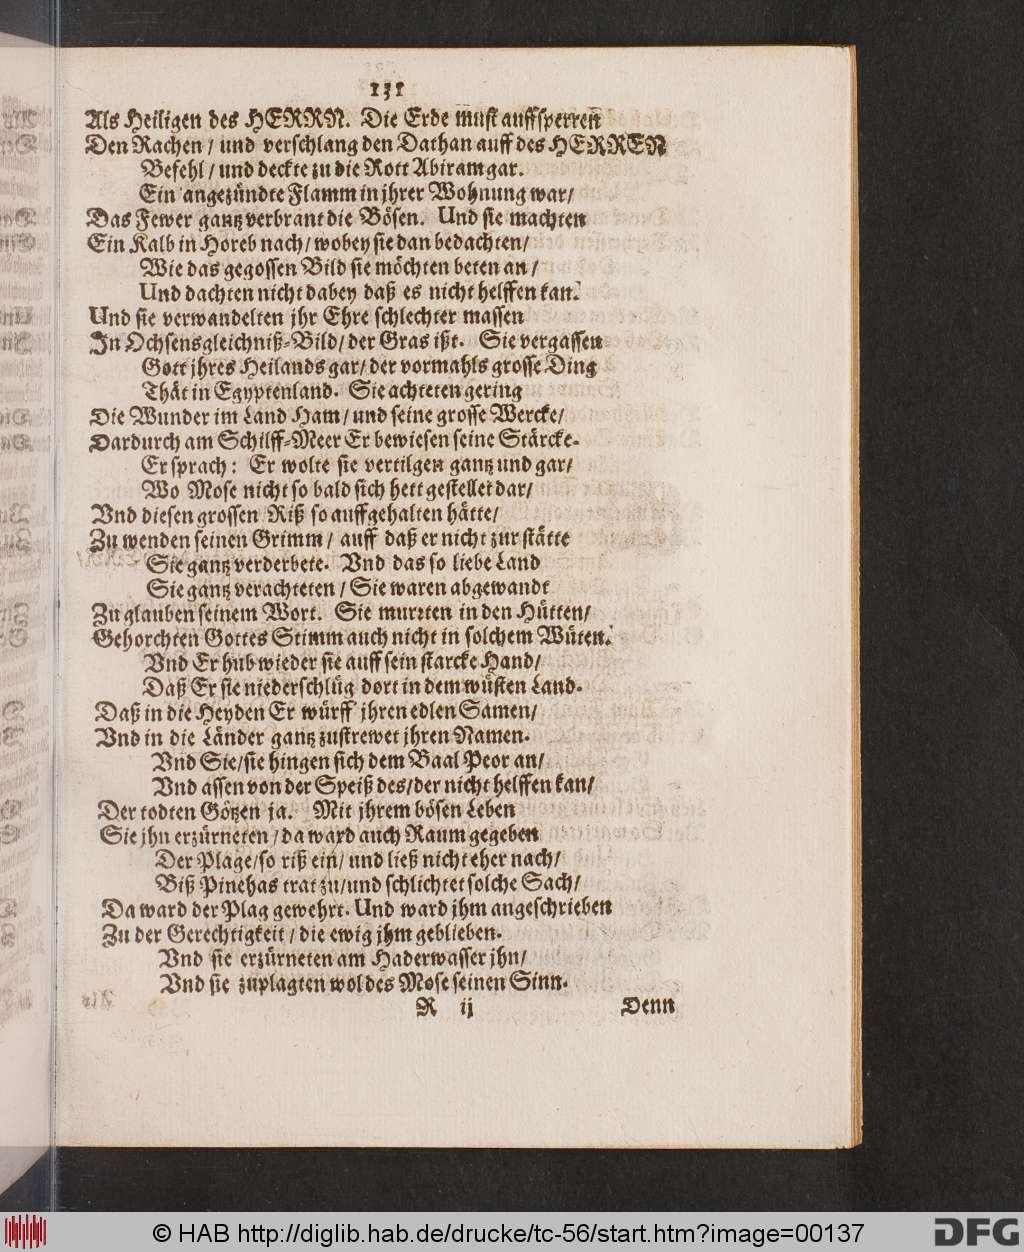 131
Als Heiligen des HERRN. Die Erde must auffsperren
Den Rachen / und verschlang den Dathan auff des HERREN
Befehl / und deckte zu die Rott Abiram gar.
Ein angezündte Flamm in jhrer Wohnung war /
Das Fewer gantz verbrant die Bösen. Und sie machten
Ein Kalb in Horeb nach / wobey sie dan bedachten /
Wie das gegossen Bild sie möchten beten an /
Und dachten nicht dabey daß es nicht helffen kan.
Und sie verwandelten jhr Ehre schlechter massen
In Ochsensgleichniß-Bild / der Gras ißt. Sie vergassen
Gott jhres Heilands gar / der vormahls grosse Ding
Thät in Egyptenland. Sie achteten gering
Die Wunder im Land Ham / und seine grosse Wercke /
Dardurch am Schilff-Meer Er bewiesen seine Stärcke.
Er sprach: Er wolte sie vertilgen gantz und gar /
Wo Mose nicht so bald sich hett gestellet dar /
Vnd diesen grossen Riß so auffgehalten hätte /
Zu wenden seinen Grimm / auff daß er nicht zur stätte
Sie gantz verderbete. Vnd das so liebe Land
Sie gantz verachteten / Sie waren abgewandt
Zu glauben seinem Wort. Sie murrten in den Hütten /
Gehorchten Gottes Stimm auch nicht in solchem Wüten.
Vnd Er hub wieder sie auff sein starcke Hand /
Daß Er sie niederschlüg dort in dem wüsten Land.
Daß in die Heyden Er würff jhren edlen Samen /
Vnd in die Länder gantz zustrewet jhren Namen.
Vnd Sie / sie hingen sich dem Baal Peor an /
Vnd assen von der Speiß des / der nicht helffen kan /
Der todten Götzen ja. Mit jhrem bösen Leben
Sie jhn erzürneten / da ward auch Raum gegeben
Der Plage / so riß ein / und ließ nicht eher nach /
Biß Pinehas trat zu / und schlichtet solche Sach /
Da ward der Plag gewehrt. Und ward jhm angeschrieben
Zu der Gerechtigkeit / die ewig jhm geblieben.
Vnd sie erzürneten am Haderwasser jhn /
Vnd sie zuplagten wol des Mose seinen Sinn.
R ij Denn
© HAB http://diglib.hab.de/drucke/tc-56/start.htm?image=00137
DFG